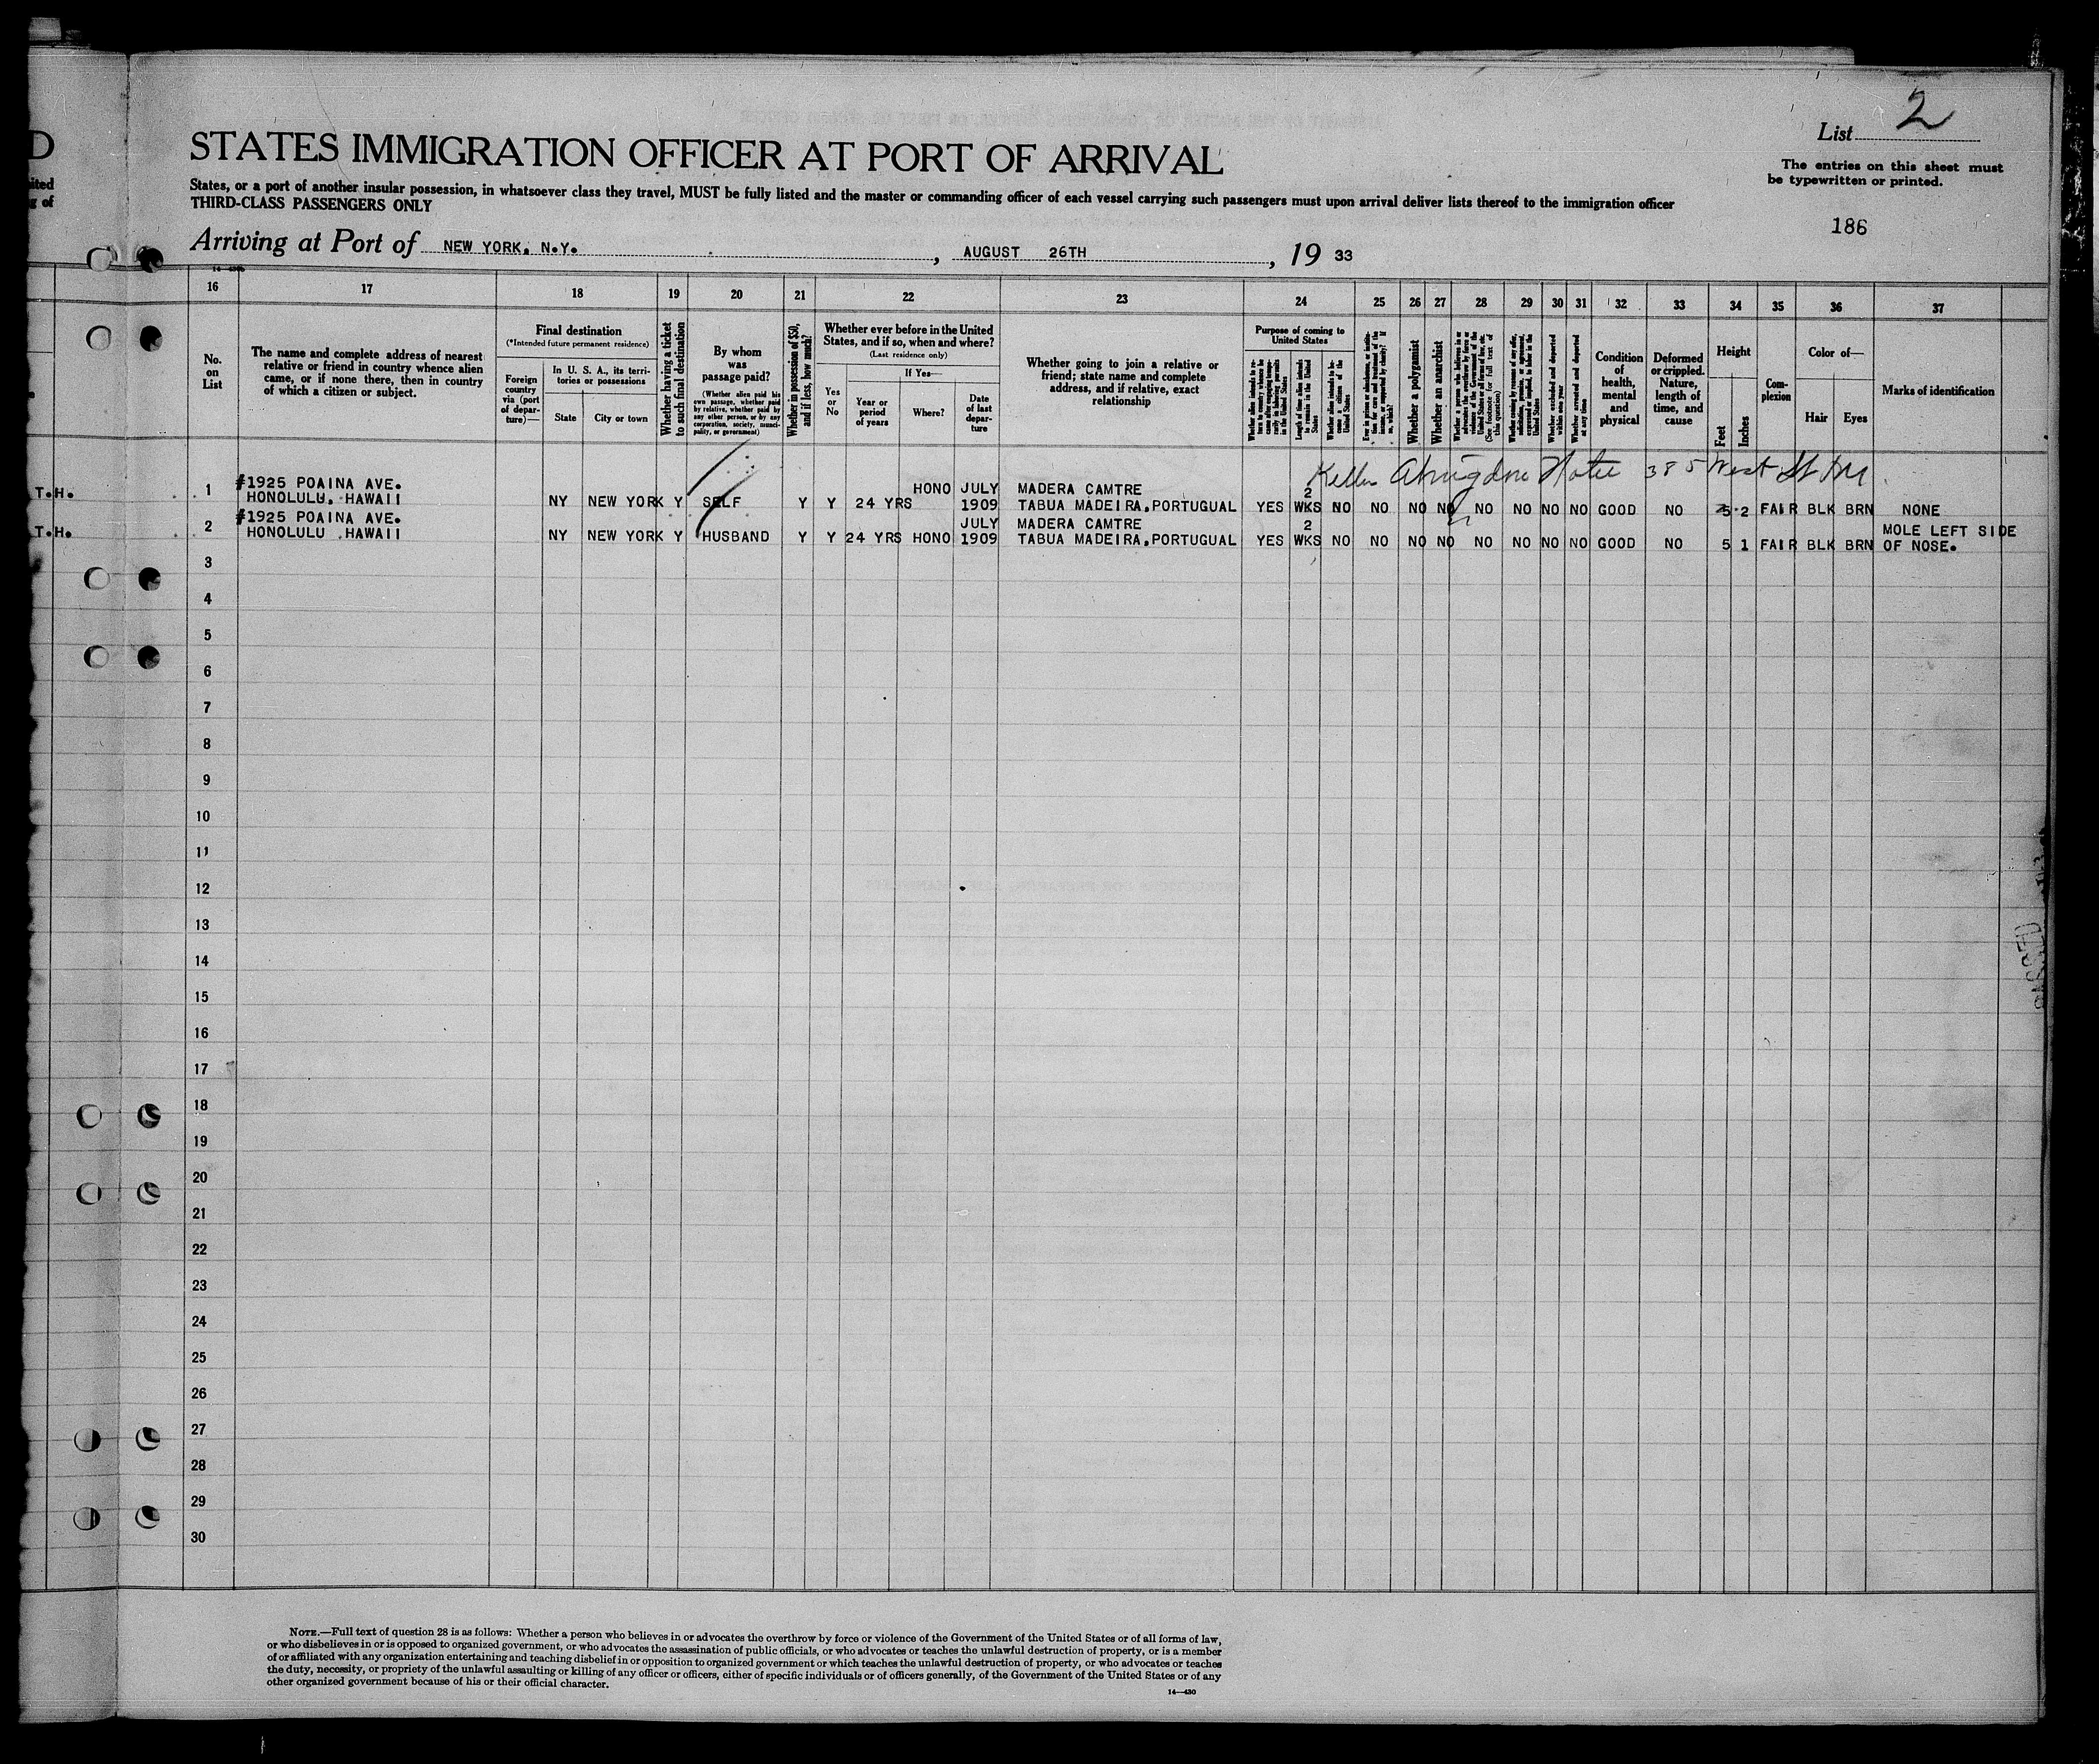 List 2
STATES IMMIGRATION OFFICER AT PORT OF ARRIVAL
The entries on this sheet must
be typewritten or printed.
States, or a port of another insular possession, in whatsoever class they travel, MUST be fully listed and the master or commanding officer of each vessel carrying such passengers must upon arrival deliver lists thereof to the immigration officer
THIRD-CLASS PASSENGERS ONLY
186
Arriving at Port of NEW YORK, N.Y. , AUGUST 26TH , 19 33
16 17 18 19 20 21 22 23 24 25 26 27 28 29 30 31 32 33 34 35 36 37
No. on List
The name and complete address of nearest relative or friend in country whence alien came, or if none there, then in country of which a citizen or subject.
Final destination
(*Intended future permanent residence)
Foreign country via (port of departure)—
In U. S. A., its territories or possessions
State
City or town
Whether having a ticket to such final destination
By whom was passage paid?
(Whether alien paid his own passage, whether paid by relative, whether paid by any other person, or by any corporation, society, municipality, or government)
Whether in possession of $50, and if less, how much?
Whether ever before in the United States, and if so, when and where?
(Last residence only)
Yes or No
If Yes—
Year or period of years
Where?
Date of last departure
Whether going to join a relative or friend; state name and complete address, and if relative, exact relationship
Purpose of coming to United States
Length of time alien intends to remain in the United States
Whether alien intends to become a citizen of the United States
Whether a polygamist
Whether an anarchist
(See footnote for full text of this question)
Whether excluded and deported within one year
Whether arrested and deported at any time
Condition of health, mental and physical
Deformed or crippled. Nature, length of time, and cause
Height
Feet
Inches
Complexion
Color of—
Hair
Eyes
Marks of identification
385 West St
T.H. 1 #1925 POAINA AVE.
HONOLULU. HAWAII NY NEW YORK Y SELF Y Y 24 YRS HONO JULY 1909 MADERA CAMTRE
TABUA MADEIRA,PORTUGUAL YES 2 WKS NO NO NO NO NO NO NO NO GOOD NO 5 2 FAIR BLK BRN NONE
T.H. 2 #1925 POAINA AVE.
HONOLULU .HAWAII NY NEW YORK Y HUSBAND Y Y 24 YRS HONO JULY 1909 MADERA CAMTRE
TABUA MADEIRA,PORTUGUAL YES 2 WKS NO NO NO NO NO NO NO NO GOOD NO 5 1 FAIR BLK BRN MOLE LEFT SIDE
OF NOSE.
3
4
5
6
7
8
9
10
11
12
13
14
15
16
17
18
19
20
21
22
23
24
25
26
27
28
29
30
NOTE.—Full text of question 28 is as follows: Whether a person who believes in or advocates the overthrow by force or violence of the Government of the United States or of all forms of law,
or who disbelieves in or is opposed to organized government, or who advocates the assassination of public officials, or who advocates or teaches the unlawful destruction of property, or is a member
of or affiliated with any organization entertaining and teaching disbelief in or opposition to organized government or which teaches the unlawful destruction of property, or who advocates or teaches
the duty, necessity, or propriety of the unlawful assaulting or killing of any officer or officers, either of specific individuals or of officers generally, of the Government of the United States or of any
other organized government because of his or their official character.
14—430